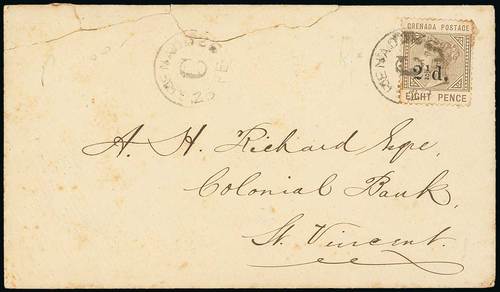 GRENADA POSTAGE
2½d.
EIGHT PENCE
GRENADA
C
A. H. Richard Esqe,
Colonial Bank,
St. Vincent.